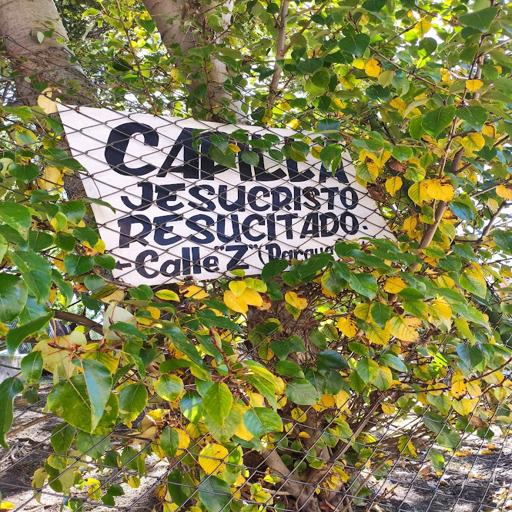 CAPILLA
JESUCRISTO
RESUCITADO.
- Calle "Z"